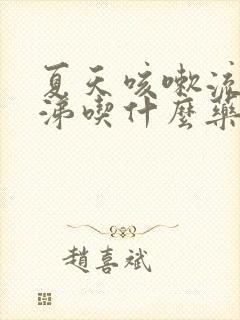 夏天咳嗽流
涕喫什麼藥
趙喜斌